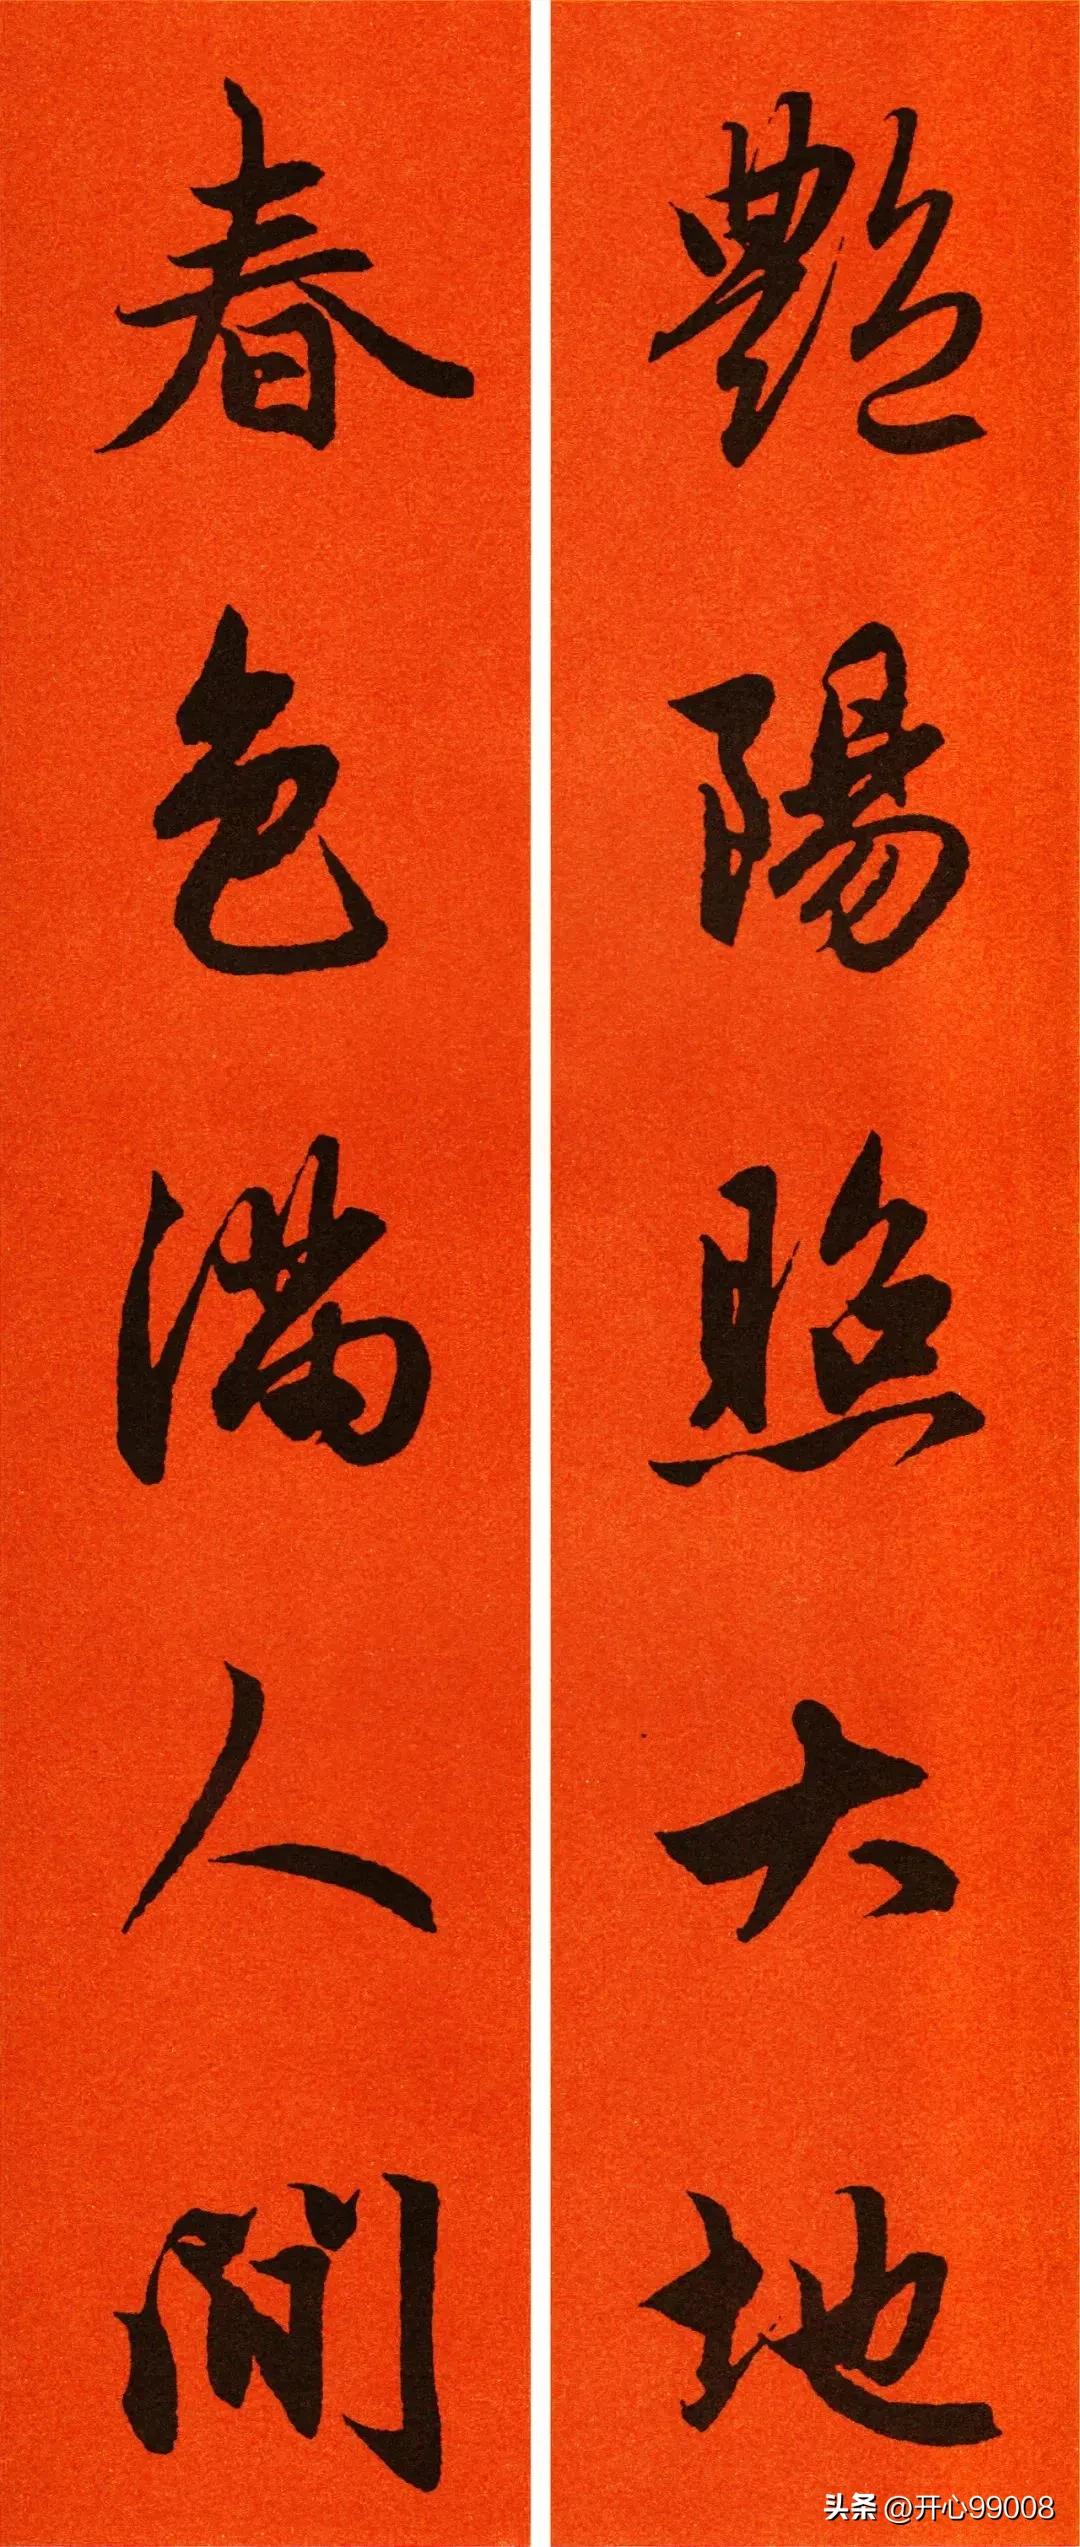 艷陽照大地
春色滿人間
头条 @开心99008